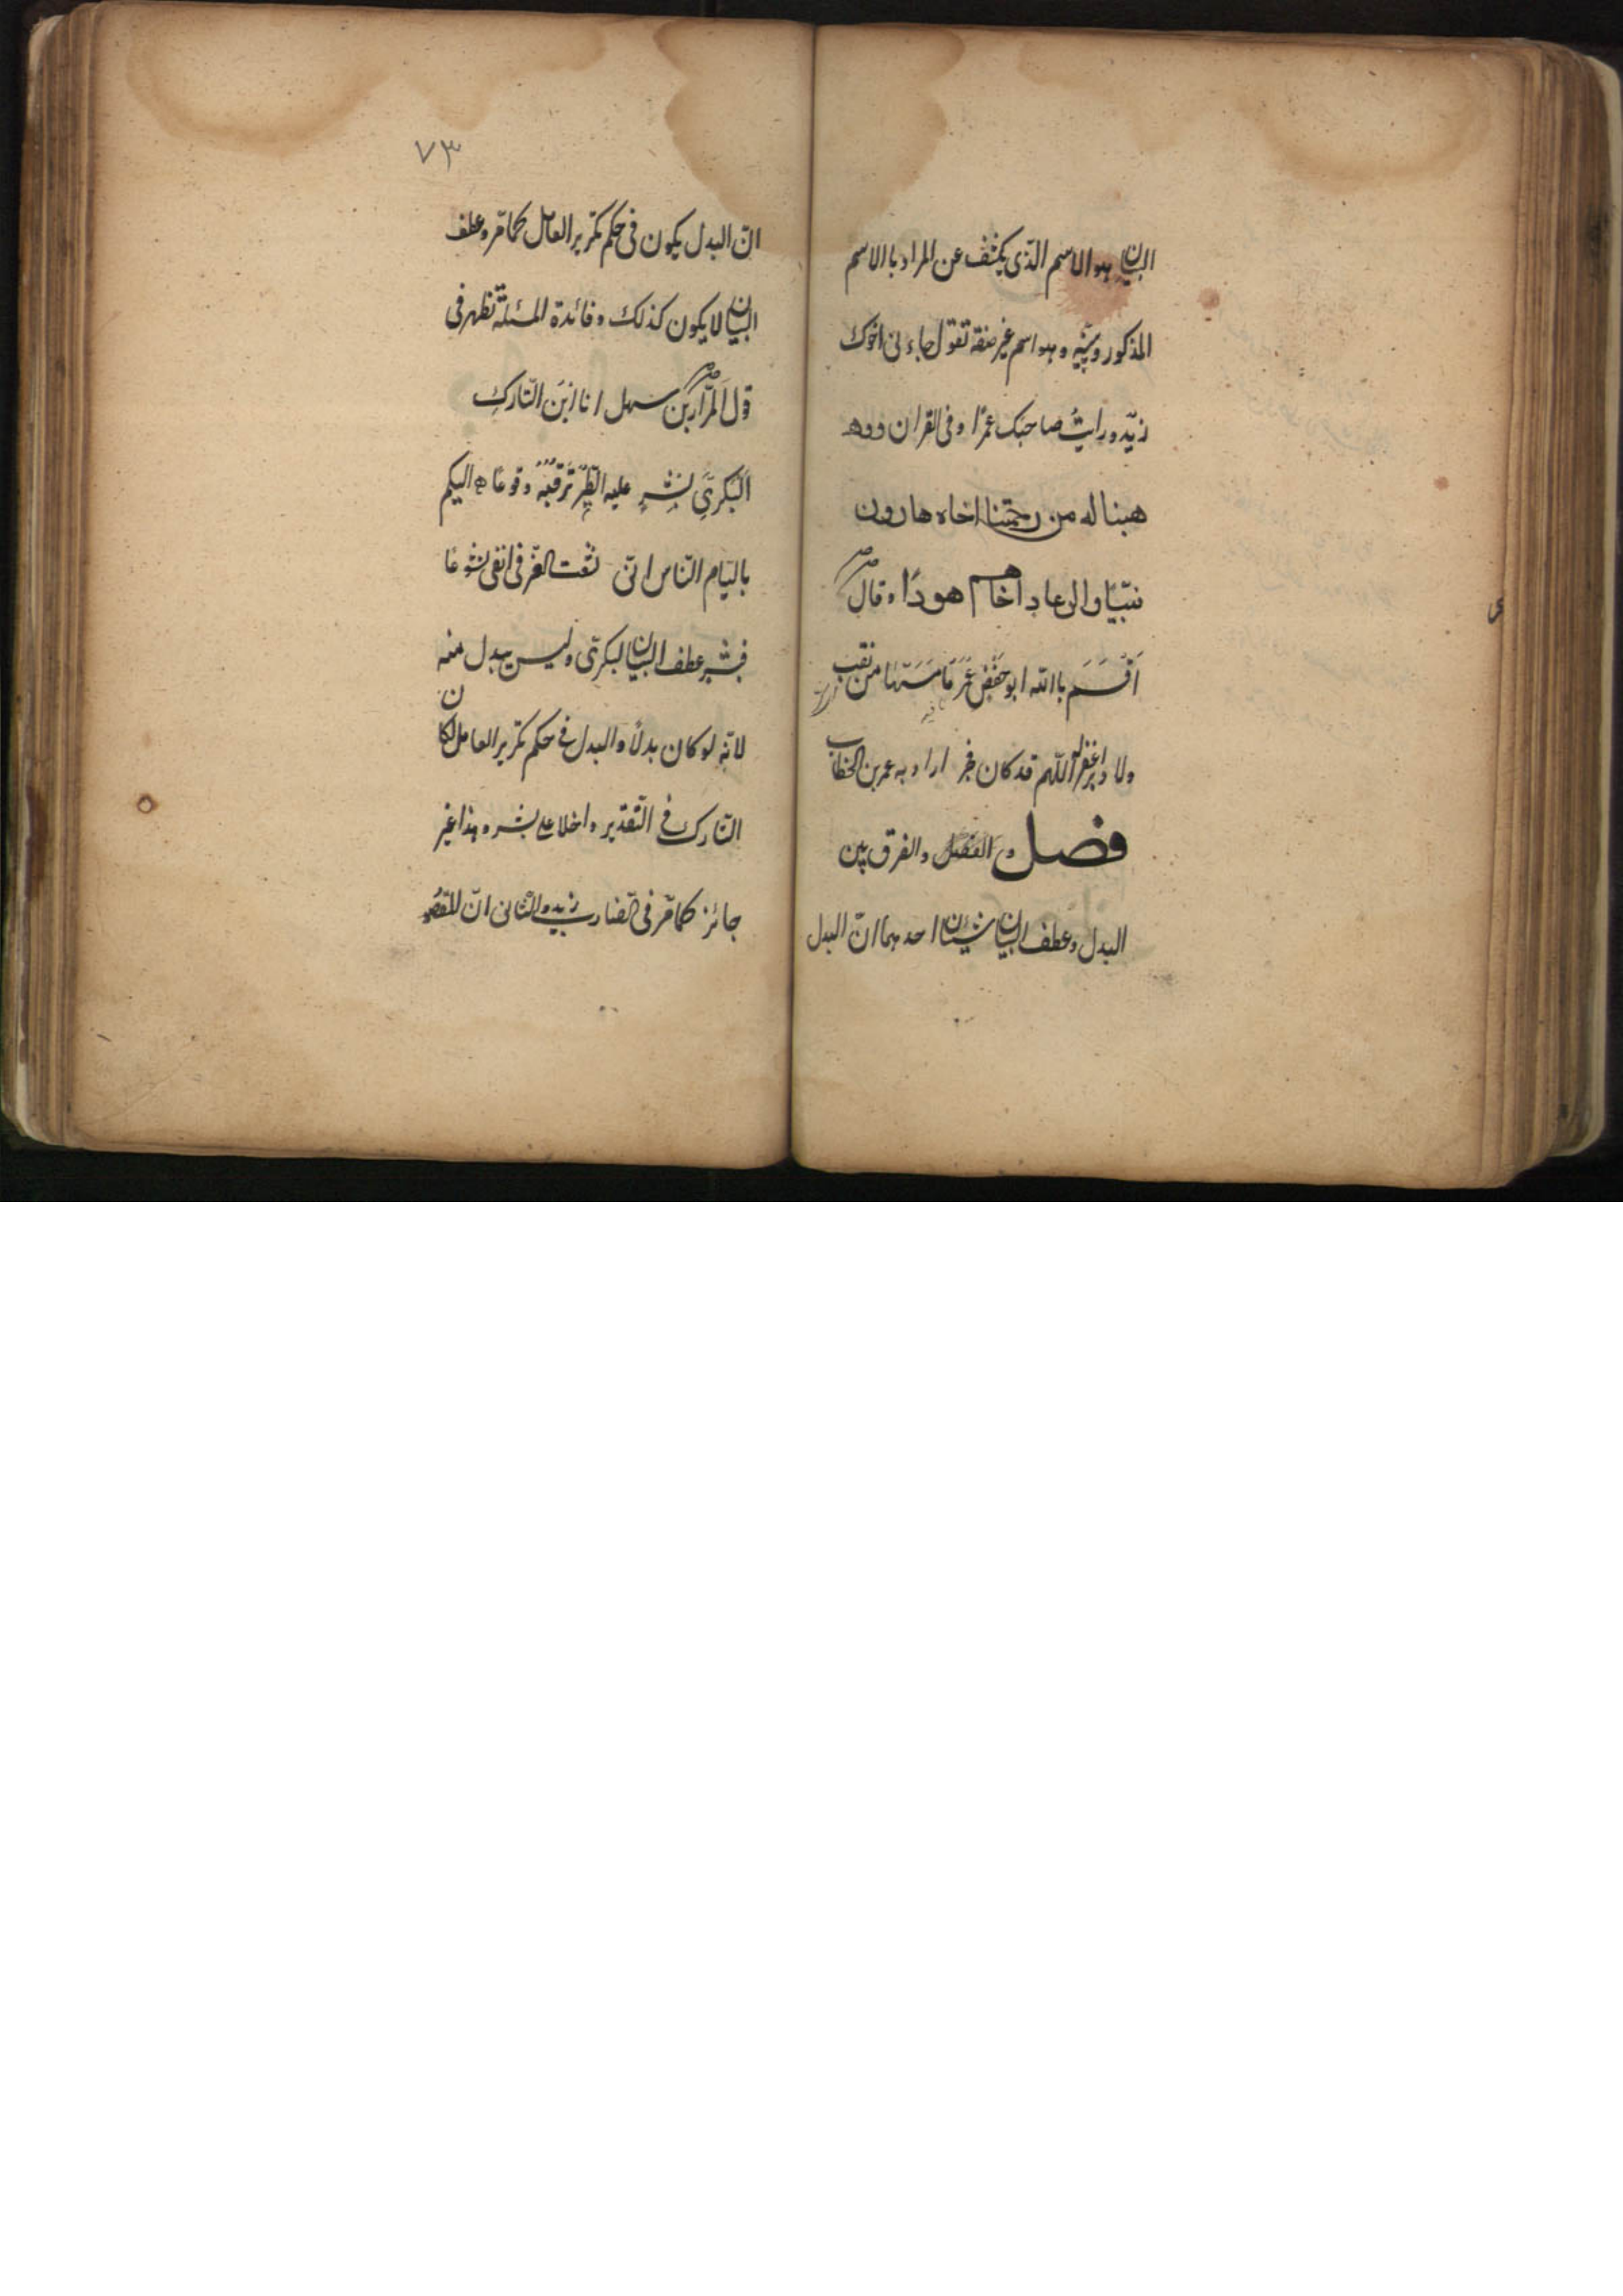 البيان هو الاسم الذى يكشف عن المراد بالاسم
المذكور ويبينه وهو اسم غير صفة تقول جاءنى اخوك
زيد ورايت صاحبك عمرًا وفى القران ووهـ
هبنا له من رحمتنا اخاه هارون
نبيّا والى عاد اخاهم هودًا وقال
اَقْسَمَ بالله ابو حفصٍ عُمَر مَا مَسَّهَا من نقب
ولا دبر اغفر له اللهم قد كان فجر اراد به عمر بن الخطاب
فصل والفرق بين
البدل وعطف البيان شيئان احدهما انّ البدل
٧٣
انّ البدل يكون فى حكم تكرير العامل كما مرّ وعطف
البيان لا يكون كذلك وفائدة المسئلة تظهر فى
قول المرّار بن سهل انا ابن التّارك
البكرىّ بشرٍ عليه الطّير ترقبه وقوعًا اليكم
بالئيام النّاس انّى نشعت العزّ فى انفى نشوعًا
فبشر عطف البيان لبكرىّ وليس ببدل منه
لانّه لو كان بدلًا والبدل فى حكم تكرير العامل لكان
التّارك فى التّقدير داخلا على بشر وهذا غير
جائز كما مرّ فى الضارب زيد والثّانى انّ المقصو